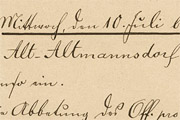 Mittwoch, den 10. Juli
Alt-Altmannsdorf
ein.
Abbetung des Off. pro